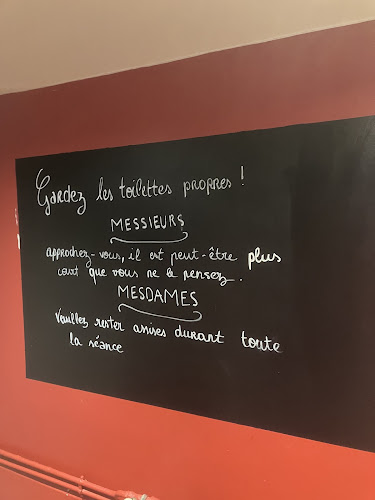 Gardez les toilettes propres !
MESSIEURS
approchez-vous, il est peut-être plus
court que vous ne le pensez.
MESDAMES
Veuillez rester assises durant toute
la séance